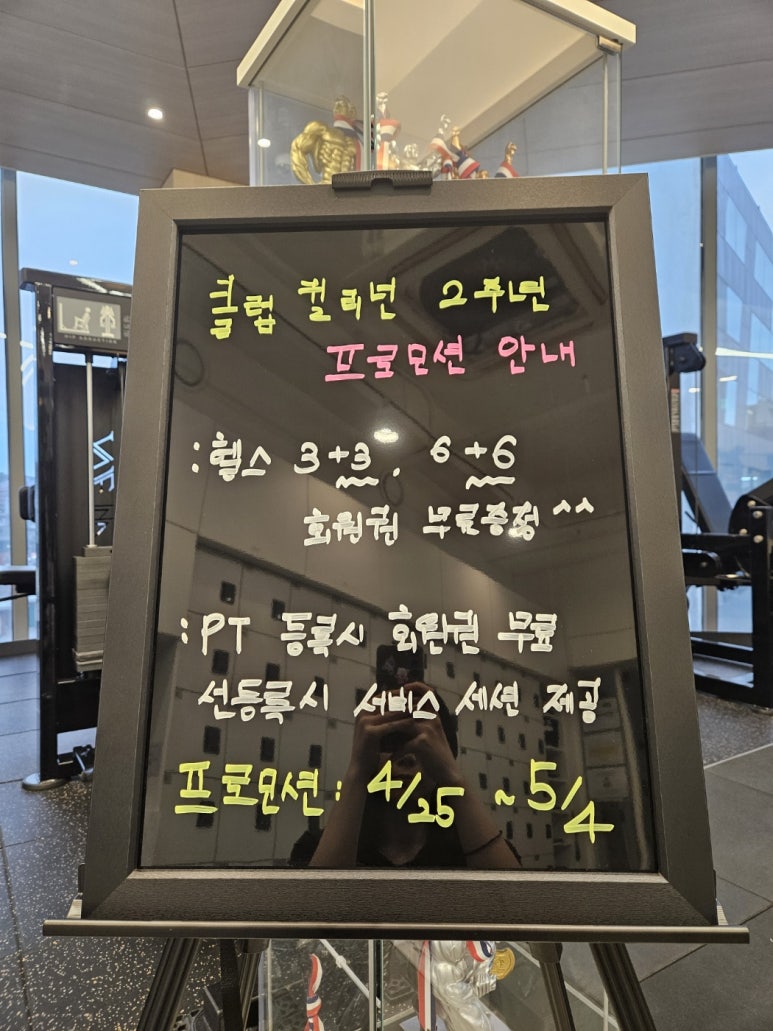 클럽 컬리넌 2주년
프로모션 안내
: 헬스 3+3, 6+6
회원권 무료증정 ^^
: PT 등록시 회원권 무료
선등록시 서비스 세션 제공
프로모션: 4/25 ~ 5/4